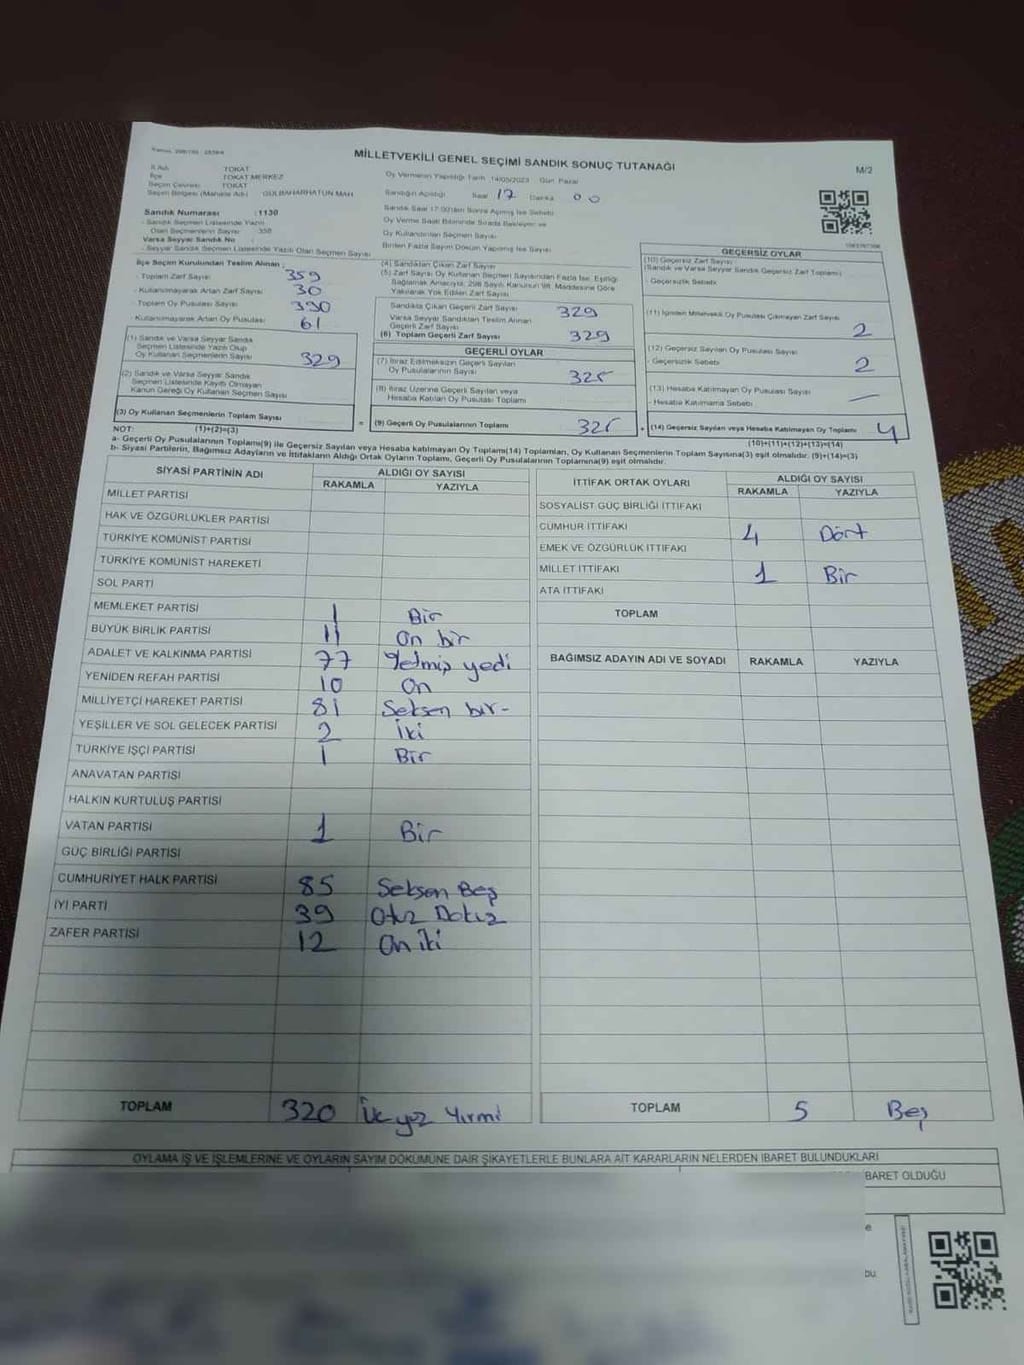 MİLLETVEKİLİ GENEL SEÇİMİ SANDIK SONUÇ TUTANAĞI
M/2
İl Adı TOKAT
İlçe TOKAT MERKEZ
Seçim Çevresi TOKAT
Seçim Bölgesi (Mahalle Adı) GÜLBAHARHATUN MAH
Sandık Numarası :1130
Sandık Seçmen Listesinde Yazılı
Olan Seçmenlerin Sayısı
Varsa Seyyar Sandık No
Seyyar Sandık Seçmen Listesinde Yazılı Olan Seçmen Sayısı
Oy Vermenin Yapıldığı Tarih :14/05/2023 Gün Pazar
Sandığın Açıldığı Saat 17 Dakika 00
Sandık Saat 17:00'den Sonra Açılmış İse Sebebi
Oy Verme Saati Bitiminde Sırada Bekleyen ve
Oy Kullandırılan Seçmen Sayısı
Birden Fazla Sayım Döküm Yapılmış İse Sayısı
İlçe Seçim Kurulundan Teslim Alınan
Toplam Zarf Sayısı 359
Kullanılmayarak Artan Zarf Sayısı 30
Toplam Oy Pusulası Sayısı 390
Kullanılmayarak Artan Oy Pusulası 61
(1) Sandık ve Varsa Seyyar Sandık
Seçmen Listesinde Yazılı Olup
Oy Kullanan Seçmenlerin Sayısı 329
(2) Sandık ve Varsa Seyyar Sandık
Seçmen Listesinde Kayıtlı Olmayan
Kanun Gereği Oy Kullanan Seçmen Sayısı
(3) Oy Kullanan Seçmenlerin Toplam Sayısı
(1)+(2)=(3)
(4) Sandıktan Çıkan Zarf Sayısı
(5) Zarf Sayısı Oy Kullanan Seçmen Sayısından Fazla İse, Eşitliği
Sağlamak Amacıyla, 298 Sayılı Kanunun 98. Maddesine Göre
Yakılarak Yok Edilen Zarf Sayısı
Sandıkta Çıkan Geçerli Zarf Sayısı 329
Varsa Seyyar Sandıktan Teslim Alınan
Geçerli Zarf Sayısı
(6) Toplam Geçerli Zarf Sayısı 329
GEÇERLİ OYLAR
(7) İtiraz Edilmeksizin Geçerli Sayılan
Oy Pusulalarının Sayısı 325
(8) İtiraz Üzerine Geçerli Sayılan veya
Hesaba Katılan Oy Pusulası Toplamı
= (9) Geçerli Oy Pusulalarının Toplamı 325
GEÇERSİZ OYLAR
(10) Geçersiz Zarf Sayısı
(Sandık ve Varsa Seyyar Sandık Geçersiz Zarf Toplamı)
Geçersizlik Sebebi
(11) İçinden Milletvekili Oy Pusulası Çıkmayan Zarf Sayısı 2
(12) Geçersiz Sayılan Oy Pusulası Sayısı
Geçersizlik Sebebi 2
(13) Hesaba Katılmayan Oy Pusulası Sayısı
Hesaba Katılmama Sebebi —
+ (14) Geçersiz Sayılan veya Hesaba Katılmayan Oy Toplamı 4
(10)+(11)+(12)+(13)=(14)
NOT:
a- Geçerli Oy Pusulalarının Toplamı(9) ile Geçersiz Sayılan veya Hesaba katılmayan Oy Toplamı(14) Toplamları, Oy Kullanan Seçmenlerin Toplam Sayısına(3) eşit olmalıdır. (9)+(14)=(3)
b- Siyasi Partilerin, Bağımsız Adayların ve İttifakların Aldığı Ortak Oyların Toplamı, Geçerli Oy Pusulalarının Toplamına(9) eşit olmalıdır.
SİYASİ PARTİNİN ADI ALDIĞI OY SAYISI
RAKAMLA YAZIYLA
MİLLET PARTİSİ
HAK VE ÖZGÜRLÜKLER PARTİSİ
TÜRKİYE KOMÜNİST PARTİSİ
TÜRKİYE KOMÜNİST HAREKETİ
SOL PARTİ
MEMLEKET PARTİSİ 1 Bir
BÜYÜK BİRLİK PARTİSİ 11 On bir
ADALET VE KALKINMA PARTİSİ 77 Yetmiş yedi
YENİDEN REFAH PARTİSİ 10 On
MİLLİYETÇİ HAREKET PARTİSİ 81 Seksen bir-
YEŞİLLER VE SOL GELECEK PARTİSİ 2 İki
TÜRKİYE İŞÇİ PARTİSİ 1 Bir
ANAVATAN PARTİSİ
HALKIN KURTULUŞ PARTİSİ
VATAN PARTİSİ 1 Bir
GÜÇ BİRLİĞİ PARTİSİ
CUMHURİYET HALK PARTİSİ 85 Seksen Beş
İYİ PARTİ 39 Otuz Dokuz
ZAFER PARTİSİ 12 On iki
TOPLAM 320 Üç yüz Yirmi
İTTİFAK ORTAK OYLARI ALDIĞI OY SAYISI
RAKAMLA YAZIYLA
SOSYALİST GÜÇ BİRLİĞİ İTTİFAKI
CUMHUR İTTİFAKI 4 Dört
EMEK VE ÖZGÜRLÜK İTTİFAKI
MİLLET İTTİFAKI 1 Bir
ATA İTTİFAKI
TOPLAM
BAĞIMSIZ ADAYIN ADI VE SOYADI RAKAMLA YAZIYLA
TOPLAM 5 Beş
OYLAMA İŞ VE İŞLEMLERİNE VE OYLARIN SAYIM DÖKÜMÜNE DAİR ŞİKAYETLERLE BUNLARA AİT KARARLARIN NELERDEN İBARET BULUNDUKLARI
BARET OLDUĞU